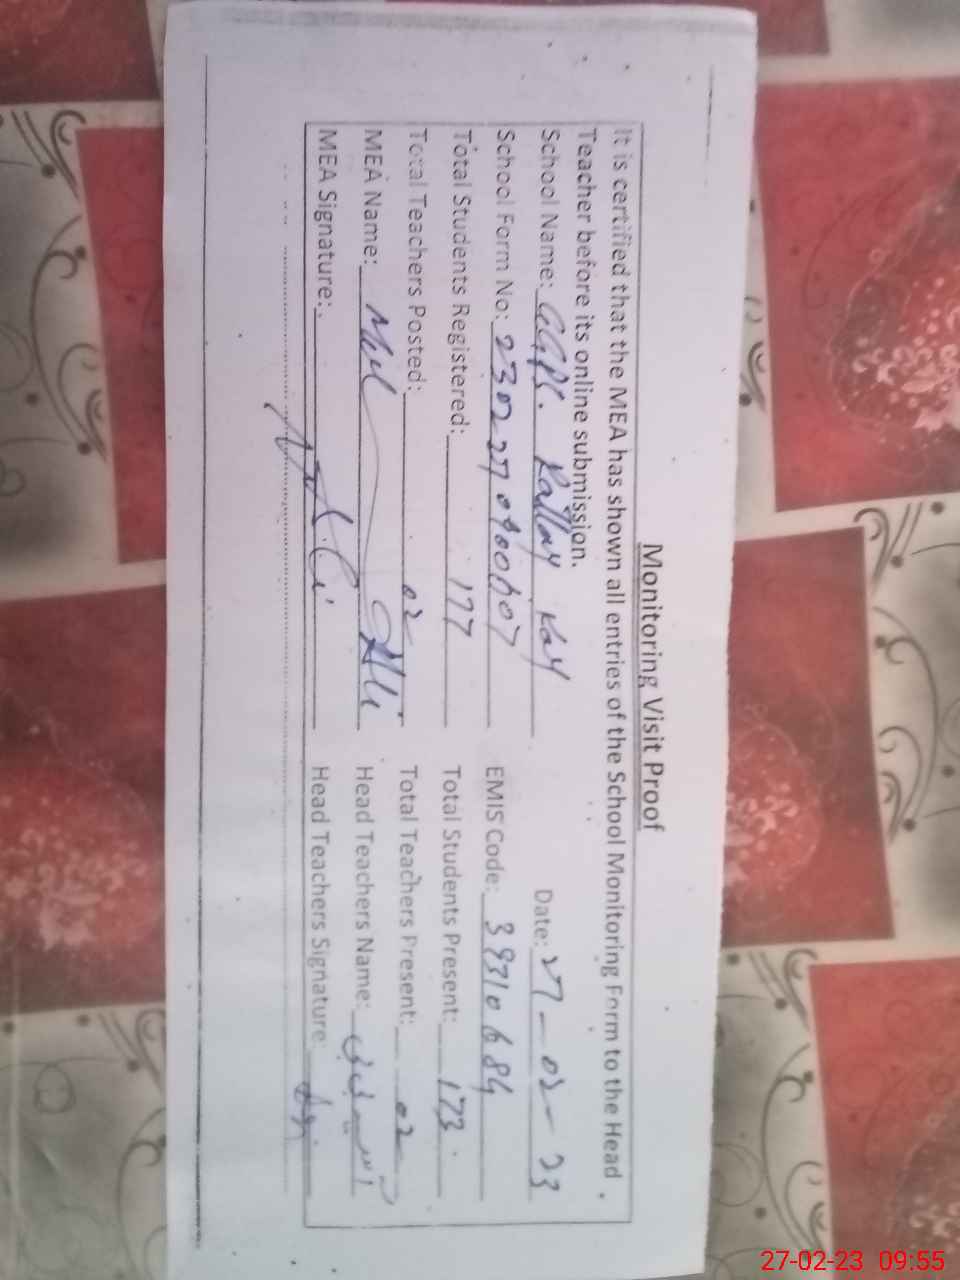 Monitoring Visit Proof
It is certified that the MEA has shown all entries of the School Monitoring Form to the Head
Teacher before its online submission.
School Name: GGPS. Kay Date: 27-02-23
School Form No: EMIS Code:
Total Students Registered: 177 Total Students Present: 173
Total Teachers Posted: 02 Total Teachers Present: 02
MEA Name: Ali Head Teachers Name:
MEA Signature: Head Teachers Signature:
27-02-23 09:55